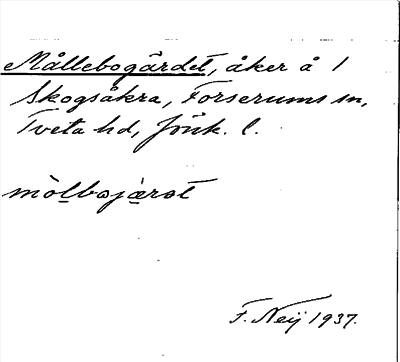 Mållebogärdet, åker å 1
Skogsåkra, Forserums sn,
Tveta hd, Jönk. l.
mòlbojärət
F. Neij 1937.